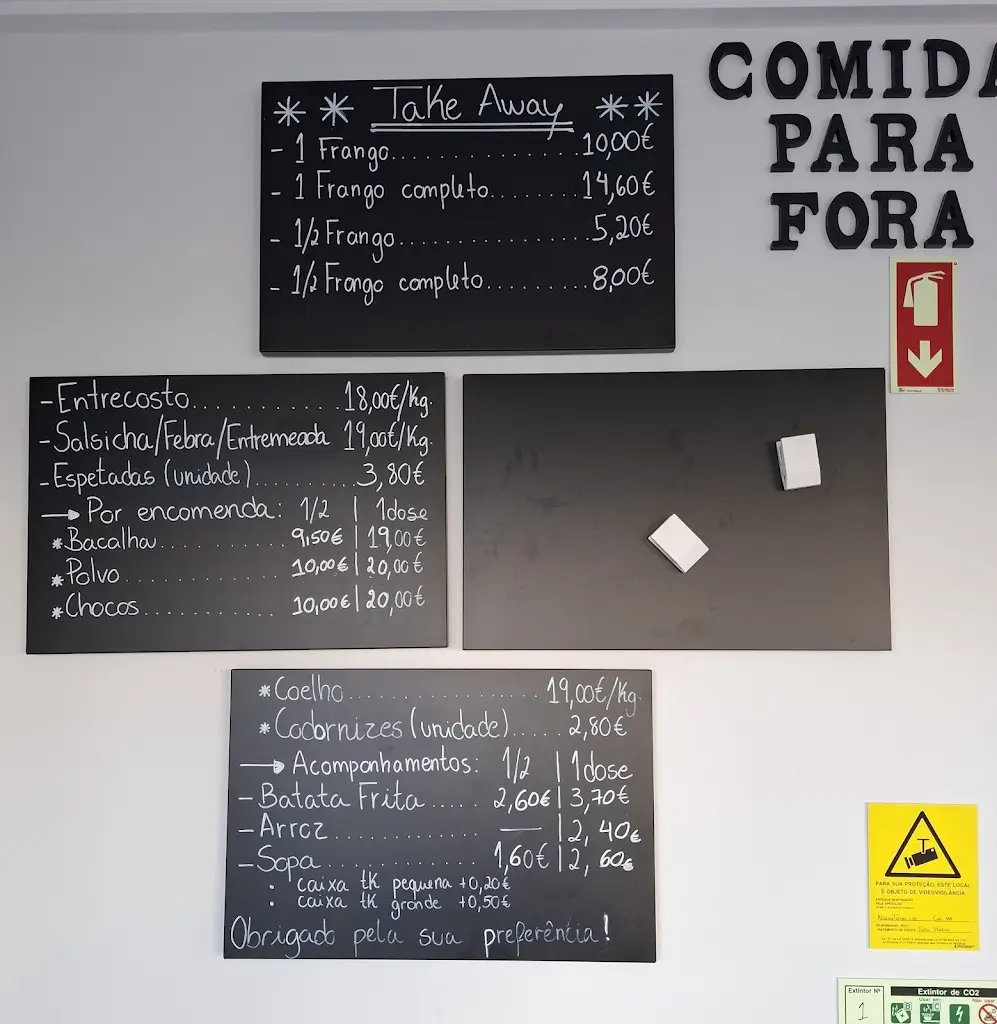 COMIDA
PARA
FORA
* * Take Away * *
- 1 Frango.................10,00€
- 1 Frango completo........14,60€
- 1/2 Frango.................5,20€
- 1/2 Frango completo..........8,00€
- Entrecosto............18,00€/Kg.
- Salsicha/Febra/Entremeada 19,00€/Kg.
- Espetadas (unidade)..........3,80€
→ Por encomenda: 1/2 | 1dose
* Bacalhau............9,50€ | 19,00€
* Polvo..............10,00€ | 20,00€
* Chocos............10,00€ | 20,00€
* Coelho....................19,00€/Kg.
* Codornizes (unidade)..... 2,80€
→ Acompanhamentos: 1/2 | 1dose
- Batata Frita..... 2,60€ | 3,70€
- Arroz.............. — | 2,40€
- Sopa..............1,60€ | 2,60€
• caixa tk pequena +0,20€
• caixa tk grande +0,50€
Obrigado pela sua preferência!
PARA SUA PROTEÇÃO, ESTE LOCAL
É OBJETO DE VIDEOVIGILÂNCIA
Extintor Nº
1
Extintor de CO2
Usar em:
Não usar
B
C